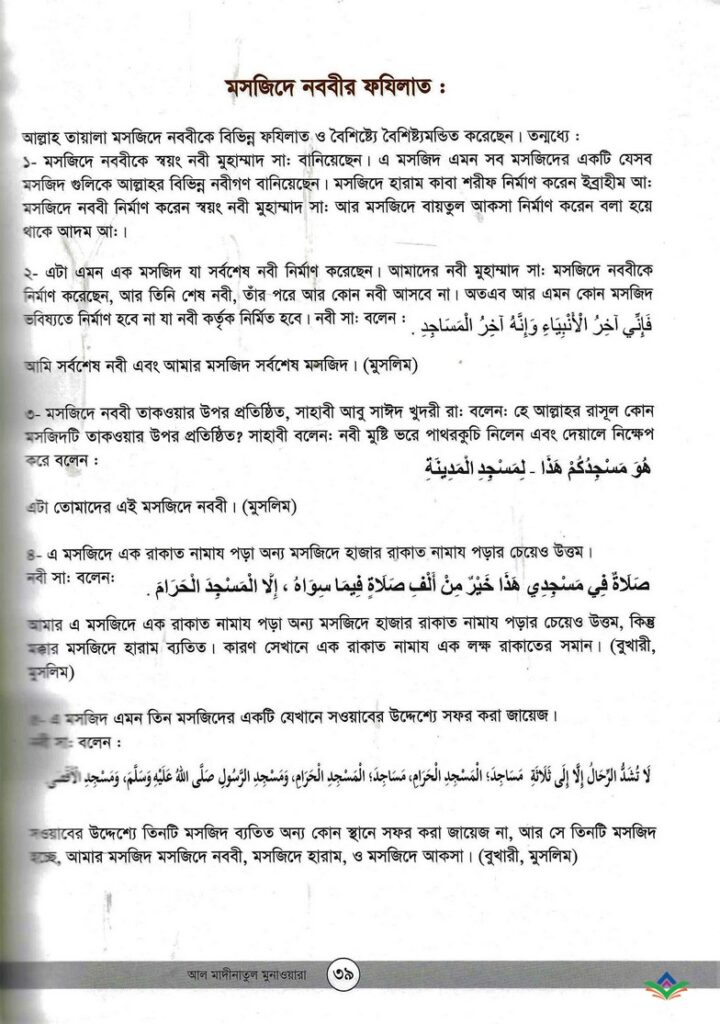 মসজিদে নববীর ফযিলাত :
আল্লাহ তায়ালা মসজিদে নববীকে বিভিন্ন ফযিলাত ও বৈশিষ্ট্যে বৈশিষ্ট্যমন্ডিত করেছেন। তন্মধ্যে :
১- মসজিদে নববীকে স্বয়ং নবী মুহাম্মাদ সাঃ বানিয়েছেন। এ মসজিদ এমন সব মসজিদের একটি যেসব
মসজিদ গুলিকে আল্লাহর বিভিন্ন নবীগণ বানিয়েছেন। মসজিদে হারাম কাবা শরীফ নির্মাণ করেন ইব্রাহীম আঃ
মসজিদে নববী নির্মাণ করেন স্বয়ং নবী মুহাম্মাদ সাঃ আর মসজিদে বায়তুল আকসা নির্মাণ করেন বলা হয়ে
থাকে আদম আঃ।
২- এটা এমন এক মসজিদ যা সর্বশেষ নবী নির্মাণ করেছেন। আমাদের নবী মুহাম্মাদ সাঃ মসজিদে নববীকে
নির্মাণ করেছেন, আর তিনি শেষ নবী, তাঁর পরে আর কোন নবী আসবে না। অতএব আর এমন কোন মসজিদ
ভবিষ্যতে নির্মাণ হবে না যা নবী কর্তৃক নির্মিত হবে। নবী সাঃ বলেন : فَإِنِّي آخِرُ الْأَنْبِيَاءِ وَإِنَّهُ آخِرُ الْمَسَاجِدِ .
আমি সর্বশেষ নবী এবং আমার মসজিদ সর্বশেষ মসজিদ। (মুসলিম)
৩- মসজিদে নববী তাকওয়ার উপর প্রতিষ্ঠিত, সাহাবী আবু সাঈদ খুদরী রাঃ বলেনঃ হে আল্লাহর রাসূল কোন
মসজিদটি তাকওয়ার উপর প্রতিষ্ঠিত? সাহাবী বলেনঃ নবী মুষ্টি ভরে পাথরকুচি নিলেন এবং দেয়ালে নিক্ষেপ
করে বলেন : هُوَ مَسْجِدُكُمْ هَذَا - لِمَسْجِدِ الْمَدِينَةِ
এটা তোমাদের এই মসজিদে নববী। (মুসলিম)
৪- এ মসজিদে এক রাকাত নামায পড়া অন্য মসজিদে হাজার রাকাত নামায পড়ার চেয়েও উত্তম।
নবী সাঃ বলেনঃ صَلَاةٌ فِي مَسْجِدِي هَذَا خَيْرٌ مِنْ أَلْفِ صَلَاةٍ فِيمَا سِوَاهُ ، إِلَّا الْمَسْجِدَ الْحَرَامَ .
আমার এ মসজিদে এক রাকাত নামায পড়া অন্য মসজিদে হাজার রাকাত নামায পড়ার চেয়েও উত্তম, কিন্তু
মক্কার মসজিদে হারাম ব্যতিত। কারণ সেখানে এক রাকাত নামায এক লক্ষ রাকাতের সমান। (বুখারী,
মুসলিম)
৫- এ মসজিদ এমন তিন মসজিদের একটি যেখানে সওয়াবের উদ্দেশ্যে সফর করা জায়েজ।
নবী সাঃ বলেন :
لَا تُشَدُّ الرِّحَالُ إِلَّا إِلَى ثَلَاثَةِ مَسَاجِدَ؛ الْمَسْجِدِ الْحَرَامِ، مَسَاجِدَ؛ الْمَسْجِدِ الْحَرَامِ، وَمَسْجِدِ الرَّسُولِ صَلَّى اللهُ عَلَيْهِ وَسَلَّمَ، وَمَسْجِدِ الْأَقْصَى
সওয়াবের উদ্দেশ্যে তিনটি মসজিদ ব্যতিত অন্য কোন স্থানে সফর করা জায়েজ না, আর সে তিনটি মসজিদ
হচ্ছে, আমার মসজিদ মসজিদে নববী, মসজিদে হারাম, ও মসজিদে আকসা। (বুখারী, মুসলিম)
আল মাদীনাতুল মুনাওয়ারা ৩৯